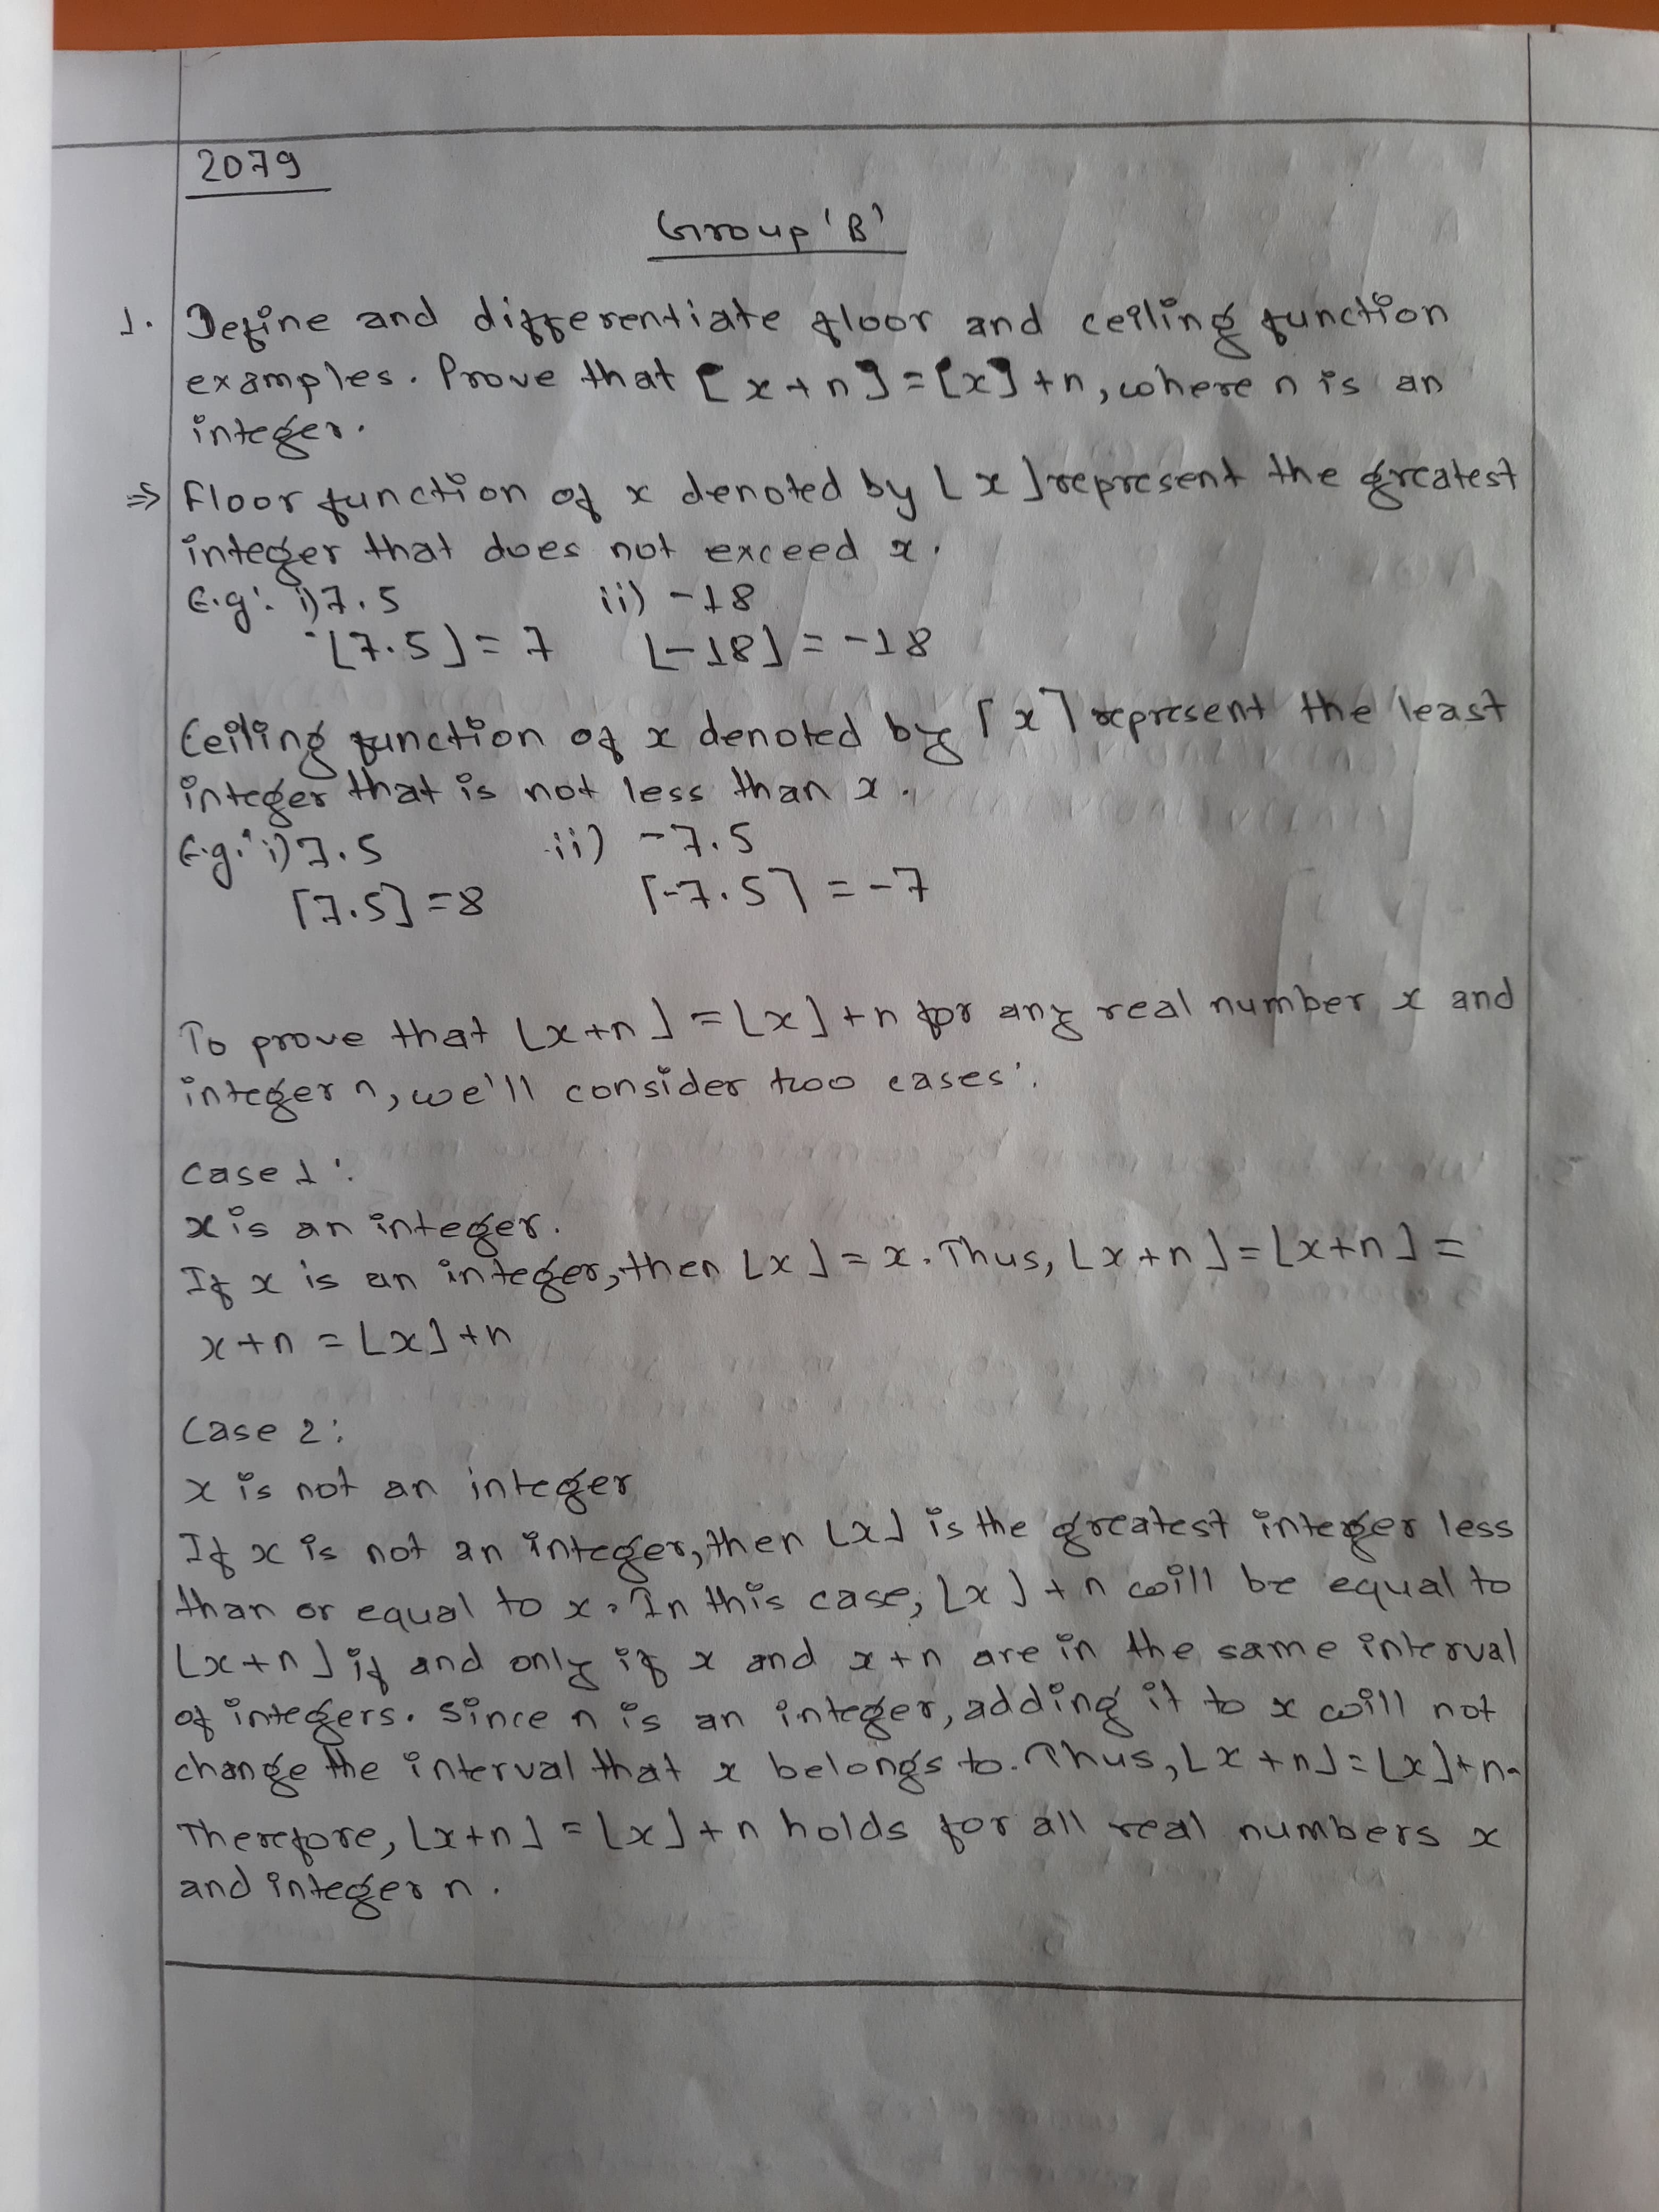 2079
Group 'B'
1. Define and differentiate floor and ceiling function
examples. Prove that [x+n]=[x]+n, where n is an
integer.
⇒ Floor function of x denoted by ⌊x⌋ represent the greatest
integer that does not exceed x.
E.g: i) 7.5 ii) -18
⌊7.5⌋ = 7 ⌊-18⌋ = -18
Ceiling function of x denoted by ⌈x⌉ represent the least
integer that is not less than x.
E.g: i) 7.5 ii) -7.5
⌈7.5⌉ = 8 ⌈-7.5⌉ = -7
To prove that ⌊x+n⌋ = ⌊x⌋+n for any real number x and
integer n, we'll consider two cases:
Case 1:
x is an integer.
If x is an integer, then ⌊x⌋ = x. Thus, ⌊x+n⌋ = ⌊x+n⌋ =
x+n = ⌊x⌋+n
Case 2:
x is not an integer
If x is not an integer, then ⌊x⌋ is the greatest integer less
than or equal to x. In this case, ⌊x⌋+n will be equal to
⌊x+n⌋ if and only if x and x+n are in the same interval
of integers. Since n is an integer, adding it to x will not
change the interval that x belongs to. Thus, ⌊x+n⌋=⌊x⌋+n.
Therefore, ⌊x+n⌋ = ⌊x⌋+n holds for all real numbers x
and integer n.